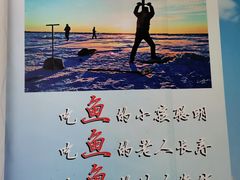 吃鱼的小孩聪明
吃鱼的老人长寿
吃鱼的